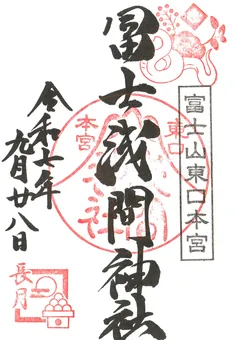 富士山東口本宮
冨士浅間神社
東口
本宮
社
令和七年
九月廿八日
長月